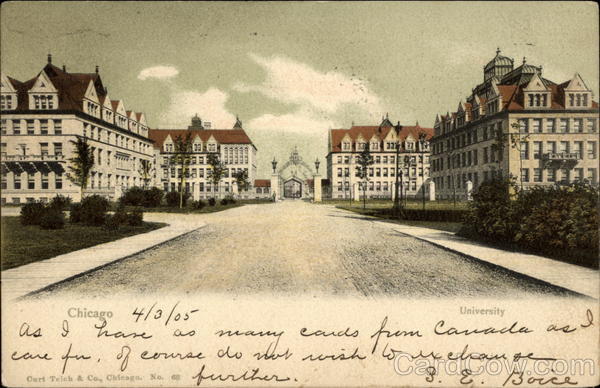 Chicago 4/3/05 University
As I have as many cards from Canada as I
care for, of course do not wish to exchange
Curt Teich & Co., Chicago. No. 68 further. S. E. Boice
CardCow.com